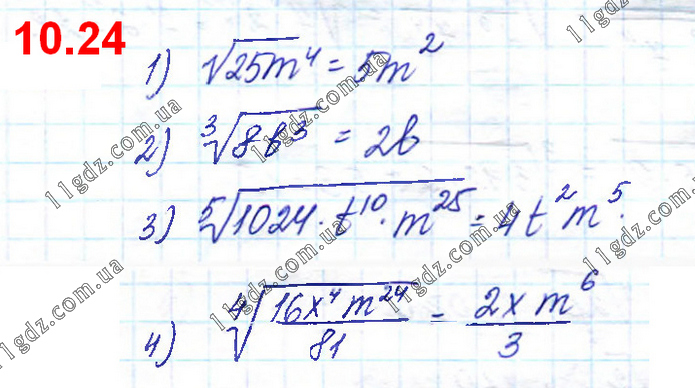 10.24
1) √25m⁴ = 5m²
2) ³√8b³ = 2b
3) ⁵√1024·t¹⁰·m²⁵ = 4t²m⁵.
4) ⁴√(16x⁴m²⁴/81) = 2xm⁶/3
11gdz.com.ua
11gdz.com.ua
11gdz.com.ua
11gdz.com.ua
11gdz.com.ua
11gdz.com.ua
11gdz.com.ua
11gdz.com.ua